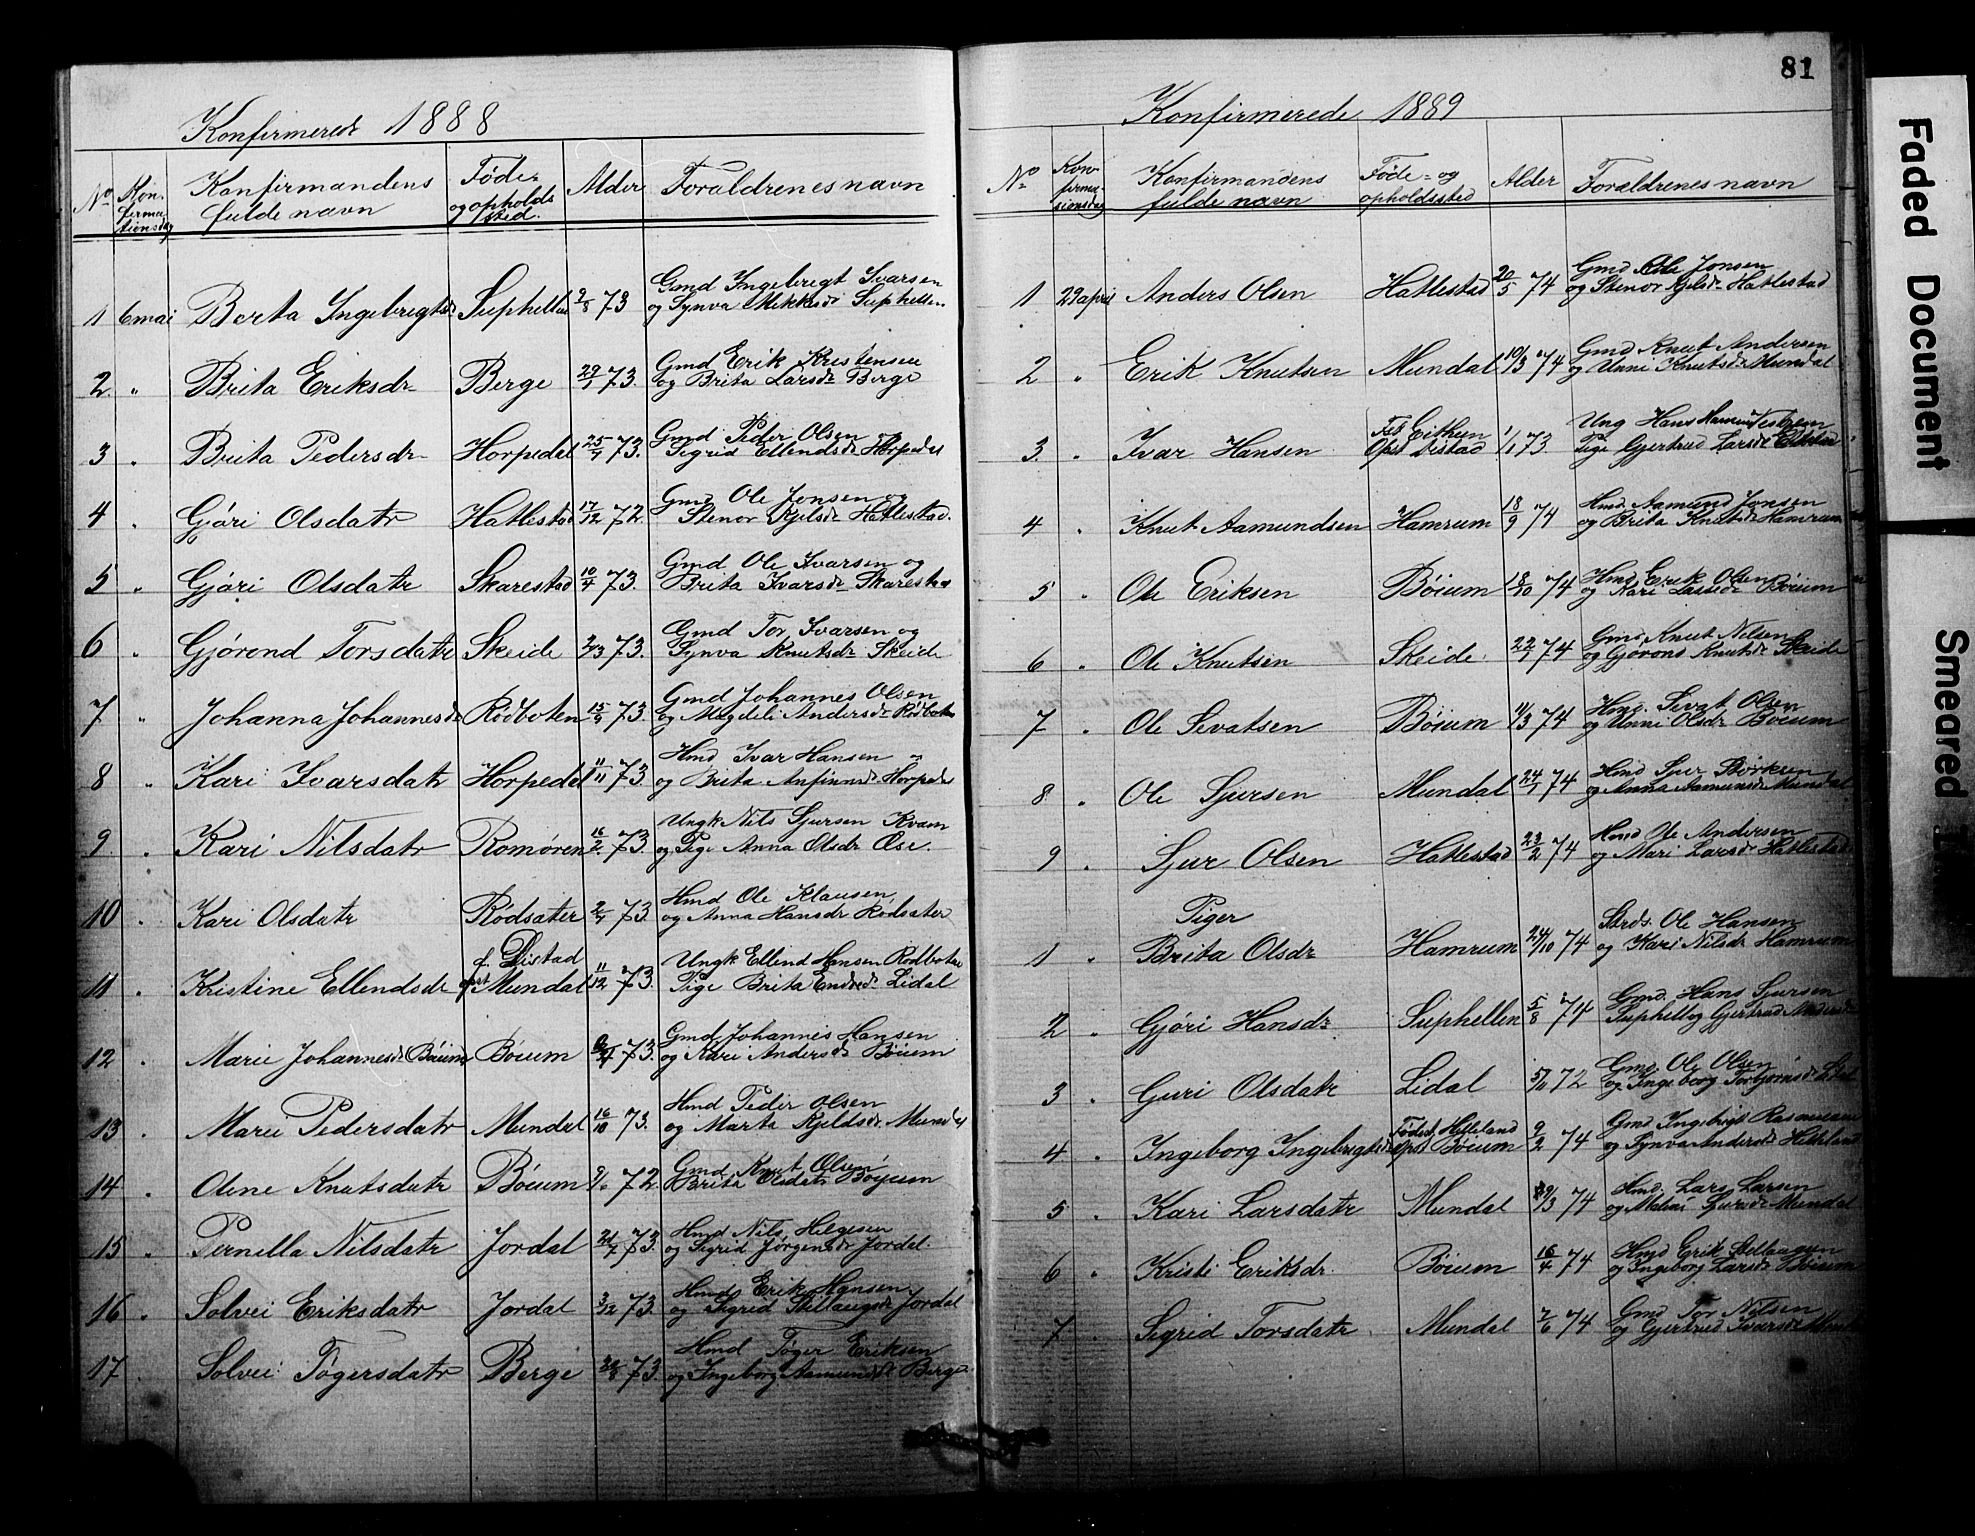 Konfirmerede 1888
No
Kon-
firma-
tionsdag
Konfirmandens
fulde navn
Føde-
og opholds
sted.
Alder
Forældrenes navn
1 6 mai Berta Ingebrigtsdr Suphellen 73
Gmd Ingebrigt Ivarsen
og Synva Mikkelsdr Suphellen
2 " Brita Eriksdr Berge 29/1 73.
Gmd Erik Kristensen
og Brita Larsdr Berge
3 " Brita Pedersdr Horpedal 73.
Gmd Peder Olsen og
Sigrid Ellendsdr Horpedal
4 " Gjøri Olsdatr Hatlestad 17/12 72.
Gmd Ole Jonsen og
Stenor Kjelsdr Hatlestad.
5 " Gjøri Olsdatr Skarestad 10/4 73.
Gmd Ole Ivarsen og
Brita Ivarsdr Skarestad
6 " Gjørond Torsdatr Skeide 73.
Gmd Tor Ivarsen og
Synva Knutsdr Skeide
7 " Johanna Johannesdr Rødboten 73.
Gmd Johannes Olsen
og Magdeli Andersdr Rødboten
8 " Kari Ivarsdatr Horpedal 11/11 73
Hmd Ivar Hansen
og Brita Anfinnsdr Horpedal
9 " Kari Nilsdatr Romøren 16/2 73.
Ungk Nils Sjursen Kvam
og Pige Anna Olsdr Øse.
10 " Kari Olsdatr Rødsæter 2/7 73.
Hmd Ole Klausen,
og Anna Hansdr Rødsæter
11 " Kristine Ellendsdr f. Distad
opst Mundal 11/12 73.
Ungk. Ellend Hansen Rødboten
Pige Brita Endresdr Lidal
12 " Marie Johannesdr Bøium Bøium 73.
Gmd Johannes Hansen
og Kari Andersdr Bøium
13 " Mari Pedersdatr Mundal 16/10 73.
Hmd Peder Olsen
og Marta Kjeldsdr Mundal
14 " Olene Knutsdatr Bøium 72
Gmd Knut Olsen
Brita Olsdatr Bøyum
15 " Pernella Nilsdatr Jordal 73.
Hmd Nils Helgesen
og Sigrid Jørgensdr Jordal.
16 " Solvei Eriksdatr Jordal 3/12 73.
Hmd Erik Hansen
og Sigrid Stellaugsdr Jordal
17 Solvei Tøgersdatr Berge 73.
Hmd Tøger Eriksen
og Ingeborg Aamundsdr Berge
81
Konfirmerede 1889
No
Kon-
firma-
sionsdag
Konfirmandens
fulde navn
Føde- og
opholdssted
Alder
Forældrenes navn
1 29 april Anders Olsen Hatlestad 20/5 74
Gmd Ole Jonsen
og Stenor Kjelsdr Hatlestad
2 " Erik Knutsen Mundal 10/3 74
Gmd Knut Andersen
og Unni Knutsdr Mundal
3. " Ivar Hansen Fød Eithun
Opst Distad 1/1 73
Ung Hans Vestrem
Pige Gjertrud Larsdr
4 " Knut Aamundsen Hamrum 18/9 74
Hmd Aamund Jonsen
og Brita Knutsdr Hamrum
5 " Ole Eriksen Bøium 18/10 74
Hmd Erik Olsen
og Kari Lassedr Bøium
6 " Ole Knutsen Skeide 22/1 74
Gmd Knut Nilsen
og Gjørond Knutsdr Skeide
7 " Ole Sevatsen Bøium 11/3 74
Hmd. Sevat Olsen
og Unni Olsdr Bøium
8 " Ole Sjursen Mundal 24/1 74
Hmd Sjur Børksen
og Anna Aamundsdr Mundal
9 " Sjur Olsen Hatlestad 23/2 74
Hmd Ole Andersen
og Mari Larsdr Hatlestad
Piger
1 " Brita Olsdr Hamrum 24/10 74
Strds. Ole Hansen
og Kari Nilsdr Hamrum
2 " Gjøri Hansdr Suphellen 5/8 74
Gmd. Hans Sjursen
Suphell og Gjertrud Andersdr
3 " Guri Olsdatr Lidal 5/11 72
Gmd. Ole Olsen
og Ingeborg Torbjørnsdr Lidal
4 " Ingeborg Ingebrigtsdr Fødest. Helleland
opst. Bøium 9/2 74
Gmd Ingebrigt Rasmussen
og Synva Andersdr Helleland
5 " Kari Larsdatr Mundal 74
Hmd. Lars Larsen
og Sjursdr Mundal
6 " Kristi Eriksdr. Bøium 16/4 74
Hmd Erik Stellaugsen
og Ingeborg Larsdr Bøium
7 " Sigrid Torsdatr. Mundal 7/6 74
Gmd Tor Nilsen
og Gjertrud Ivarsdr Mundal
Faded Document
Smeared